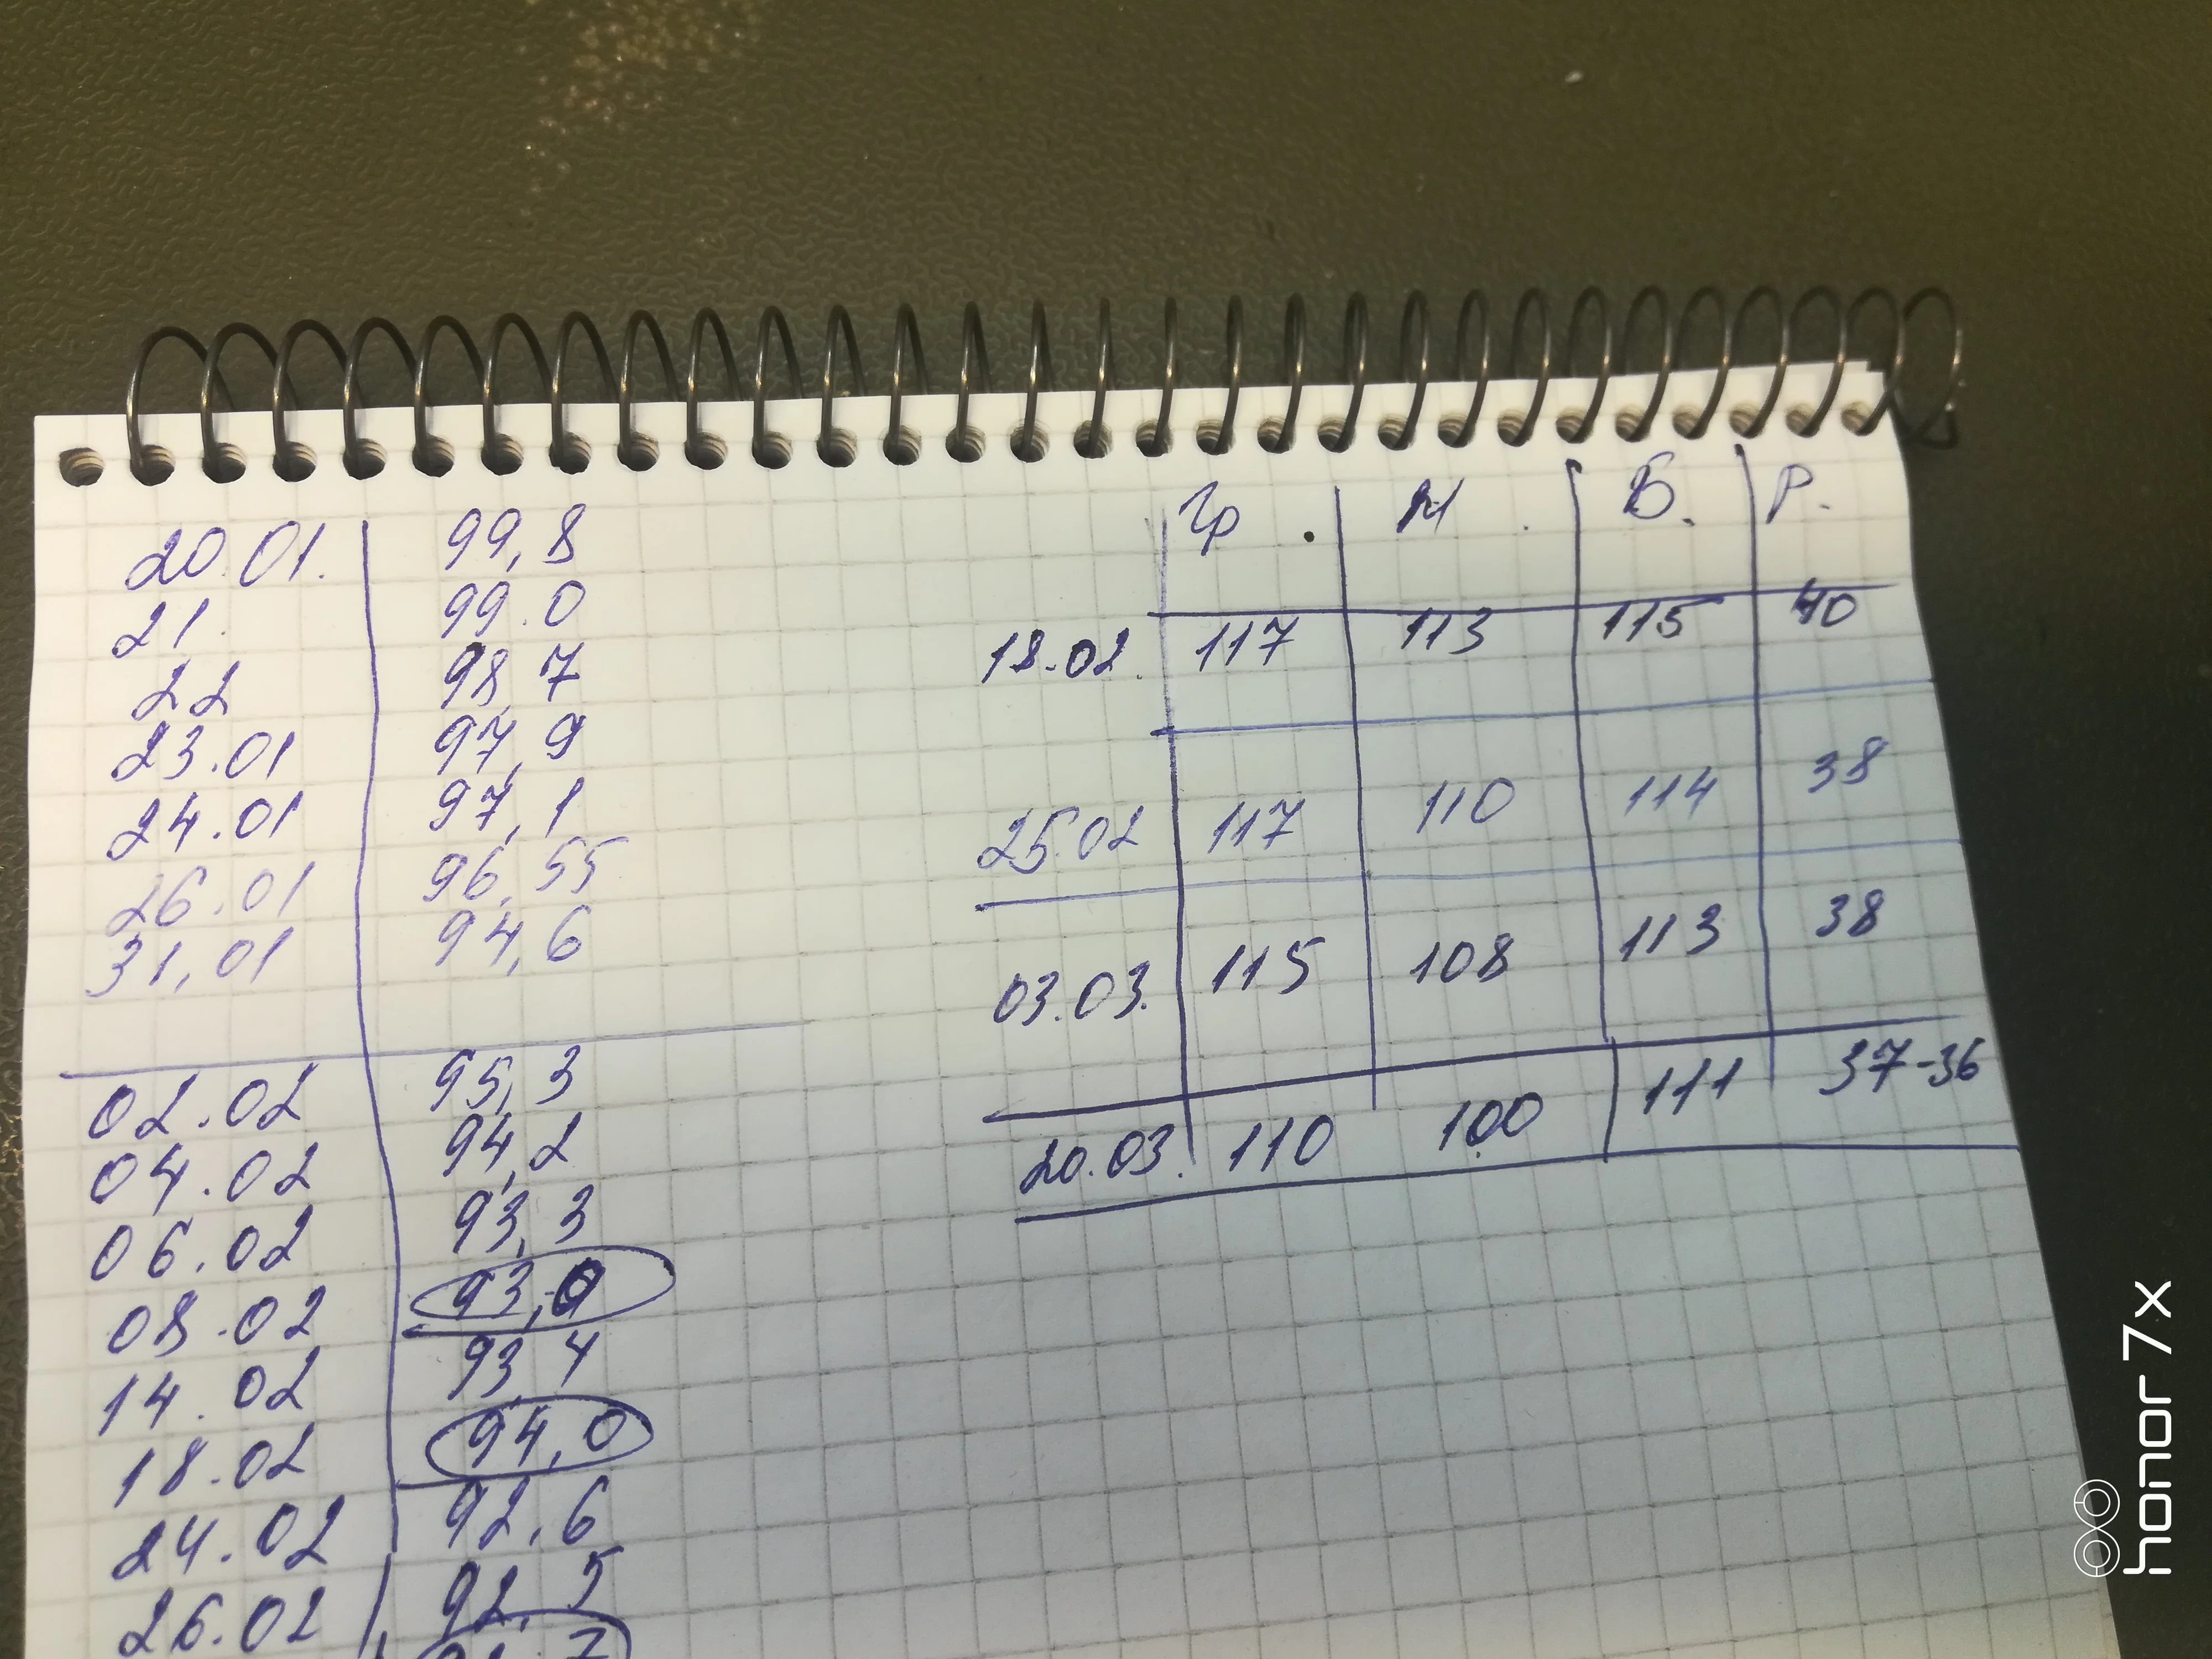 20.01. 99,8
21. 99.0
22 98,7
23.01 97,9
24.01 97,1
26.01 96,55
31,01 94,6
02.02 95,3
04.02 94,2
06.02 93,3
08.02 93,0
14.02 93,4
18.02 94,0
24.02 92,6
26.02 92,5
Гр. М. Б. Р.
18.02. 117 113 115 40
25.02 117 110 114 38
03.03. 115 108 113 38
20.03. 110 100 111 37-36
honor 7x